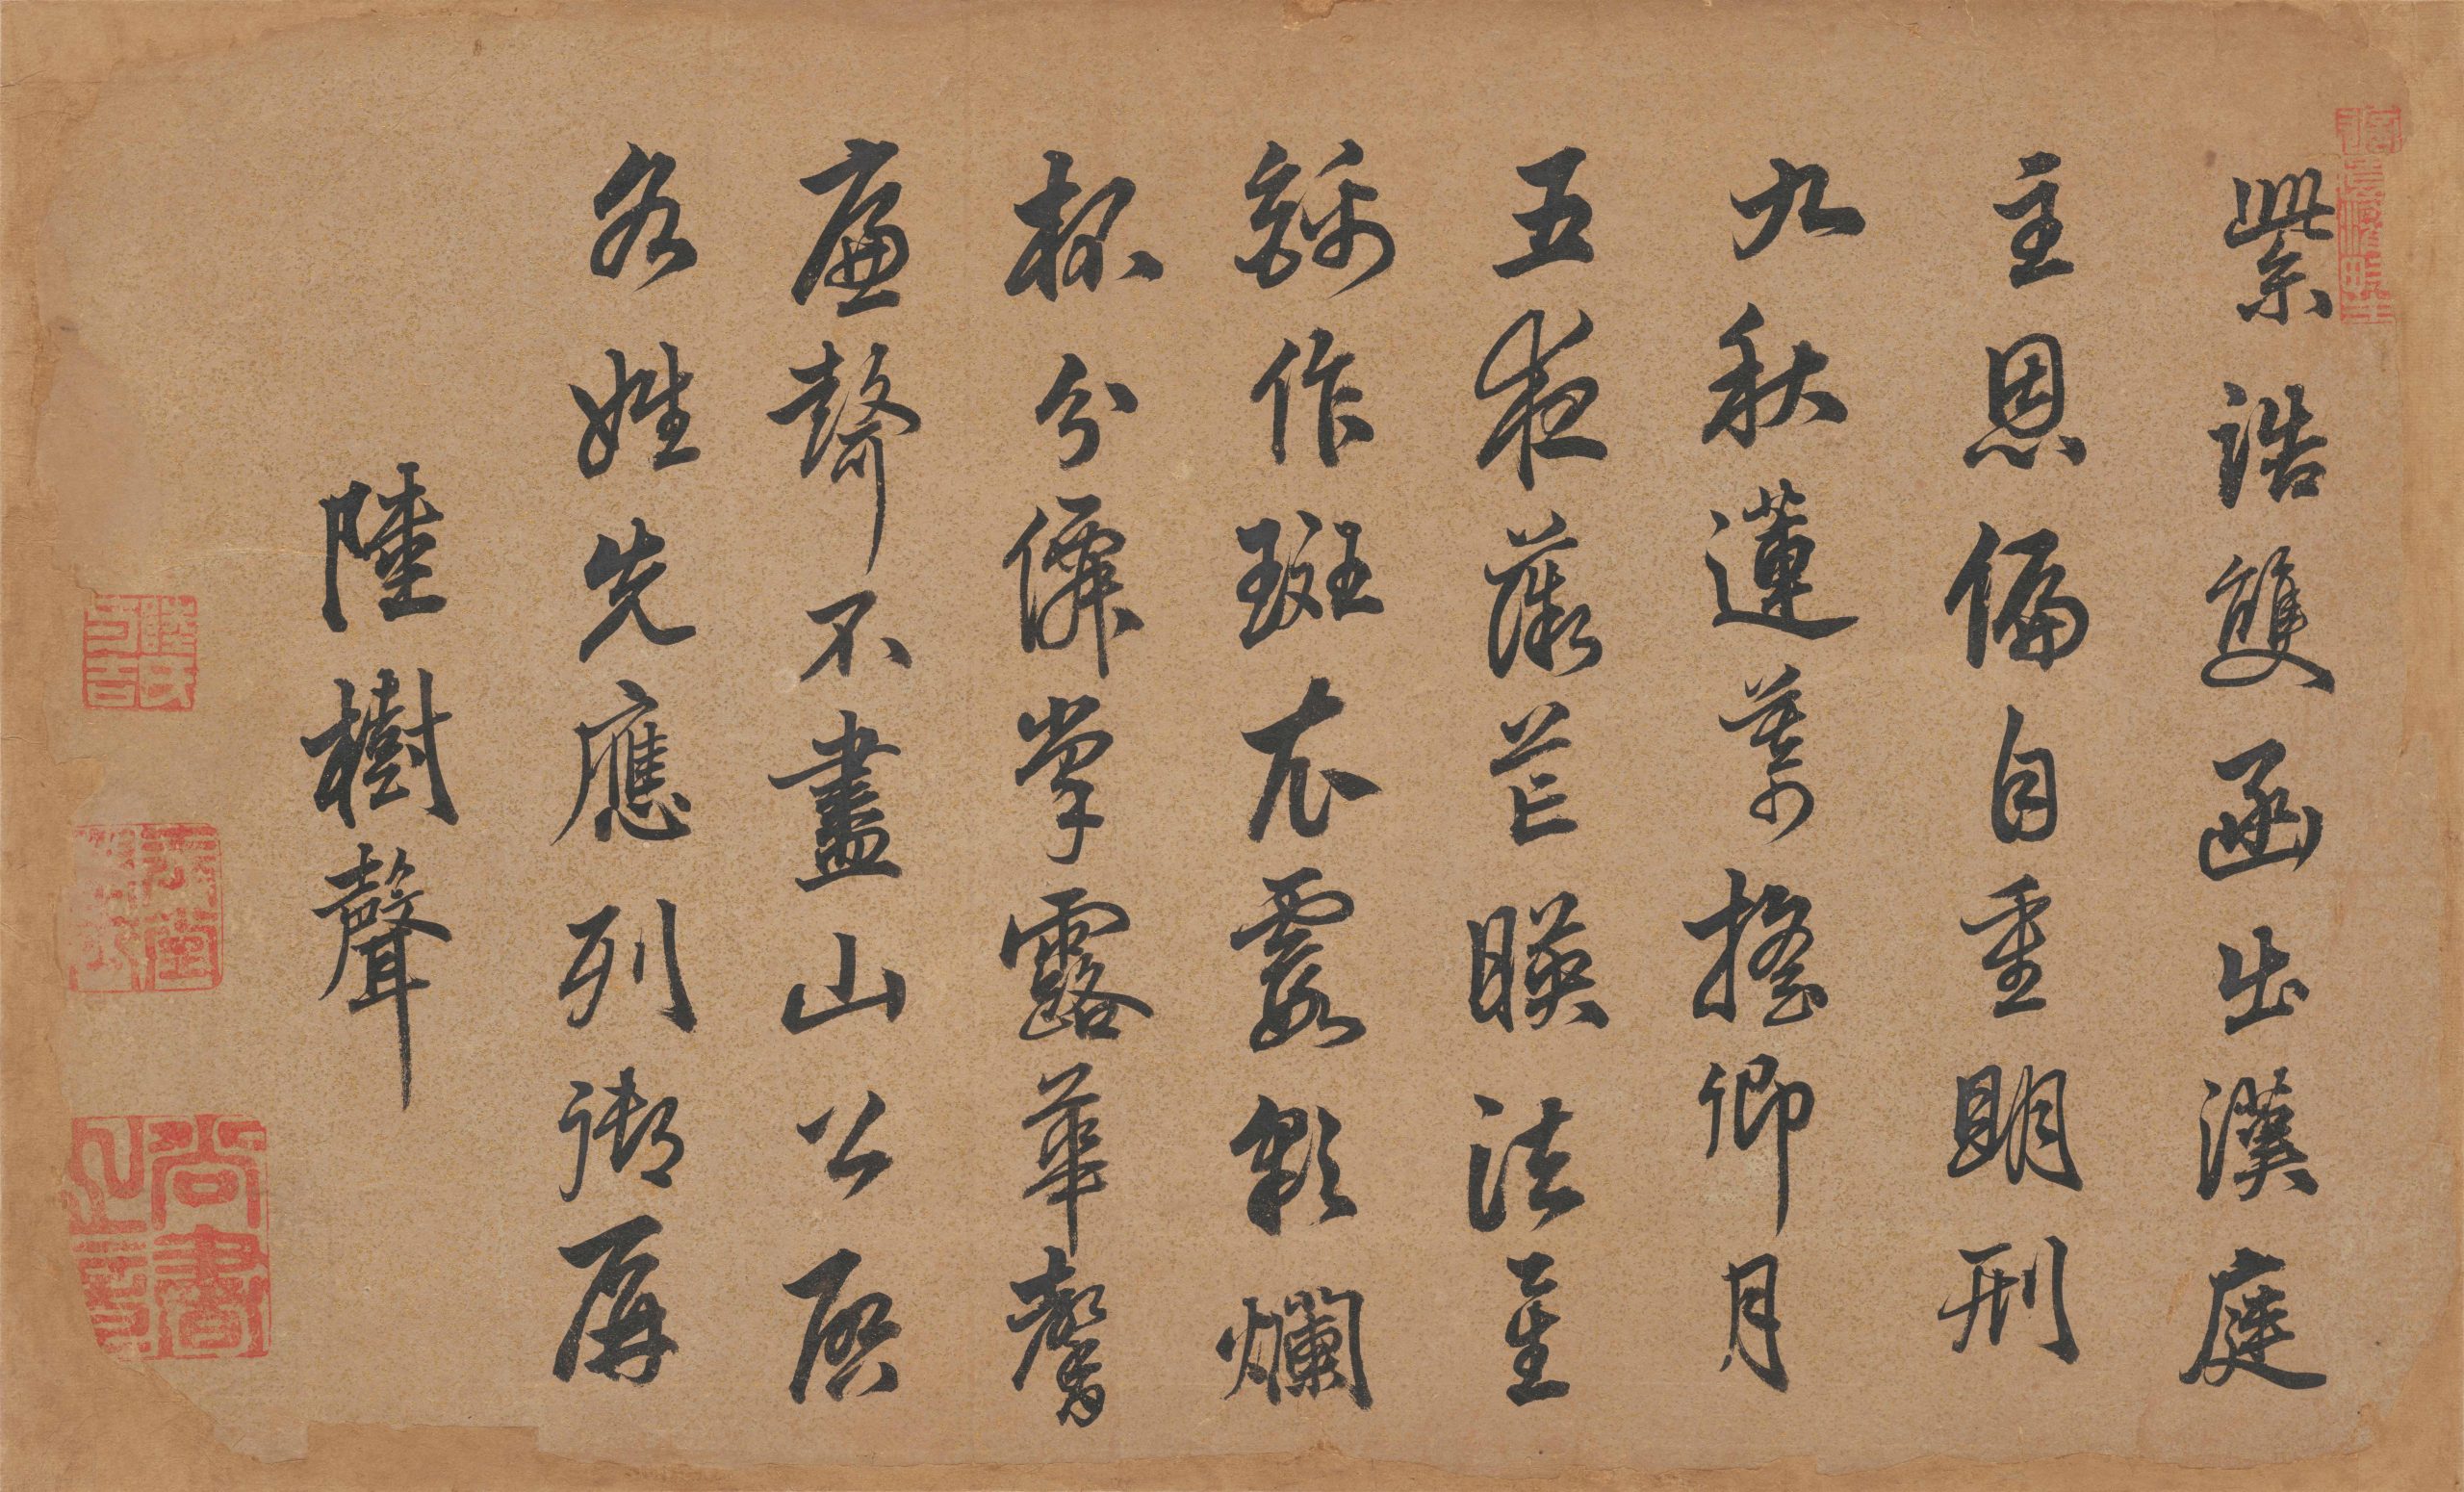 紫誥雙函出漢庭
主恩偏自重明刑
九秋蓮萼搖卿月
五夜芒暎法星
錦作斑衣霞爛
杯分僊掌露華馨
廉聲不盡山公啓
名姓先應列御屏
陸樹聲
尚書